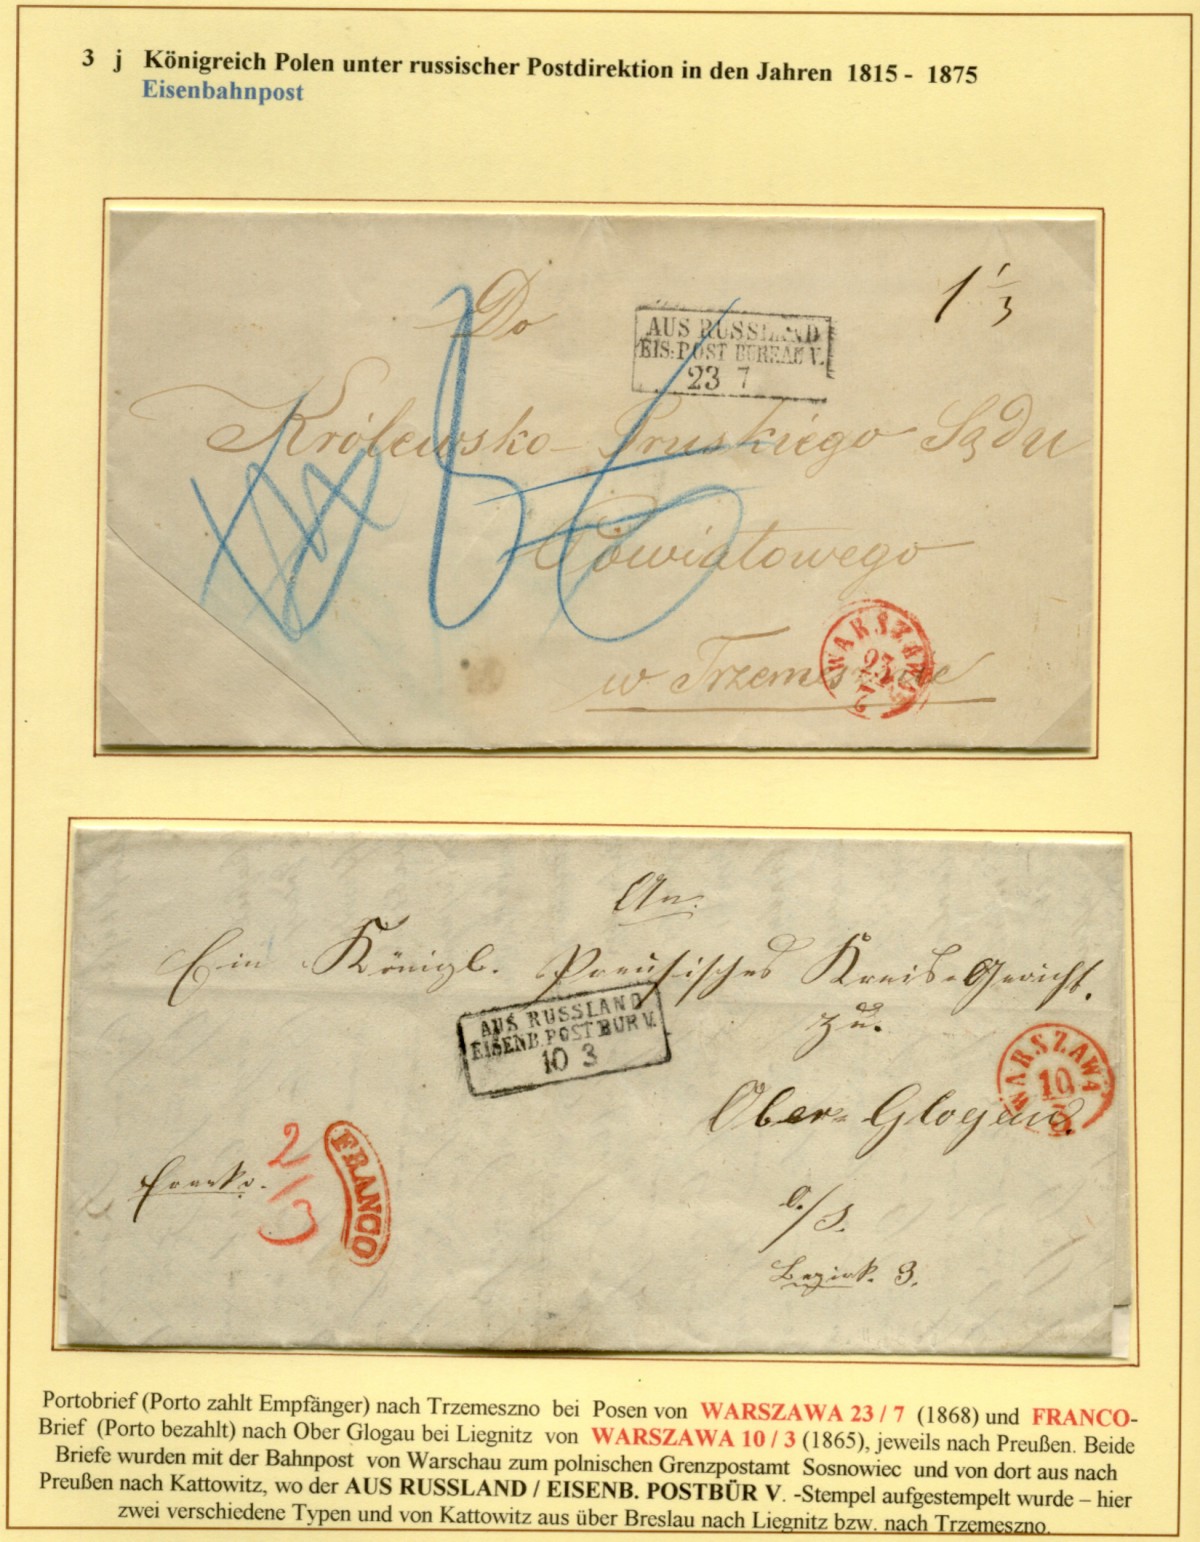 3 j Königreich Polen unter russischer Postdirektion in den Jahren 1815 - 1875
Eisenbahnpost
Do
1 1/3
AUS RUSSLAND
EIS: POST BUREAU V.
23 7
Królewsko-Pruskiego Sądu
Powiatowego
WARSZAWA
23
7
w Trzemesznie
An.
Ein Königl. Preußisches Kreis-Gericht.
zu.
AUS RUSSLAND
EISENB. POSTBUR V.
10 3
WARSZAWA
10
3
Ober-Glogau.
Franko.
2/3
FRANCO
o./S.
Bezirk. 3.
Portobrief (Porto zahlt Empfänger) nach Trzemeszno bei Posen von WARSZAWA 23 / 7 (1868) und FRANCO-
Brief (Porto bezahlt) nach Ober Glogau bei Liegnitz von WARSZAWA 10 / 3 (1865), jeweils nach Preußen. Beide
Briefe wurden mit der Bahnpost von Warschau zum polnischen Grenzpostamt Sosnowiec und von dort aus nach
Preußen nach Kattowitz, wo der AUS RUSSLAND / EISENB. POSTBÜR V. -Stempel aufgestempelt wurde – hier
zwei verschiedene Typen und von Kattowitz aus über Breslau nach Liegnitz bzw. nach Trzemeszno.